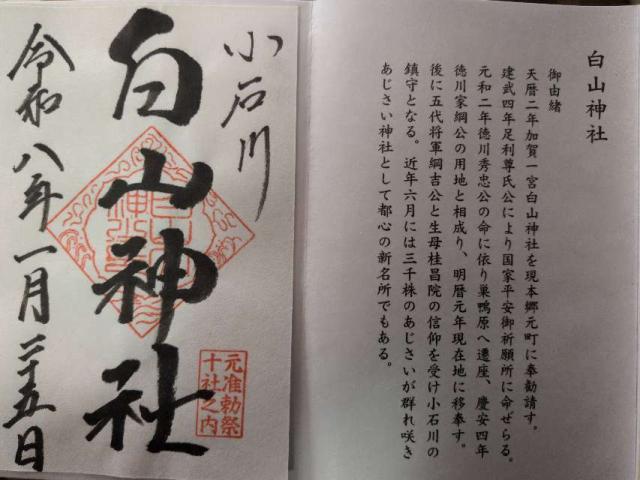 白山神社
御由緒
天暦二年加賀一宮白山神社を現本郷元町に奉勧請す。
建武四年足利尊氏公により国家平安御祈願所に命ぜらる。
元和二年徳川秀忠公の命に依り巣鴨原へ遷座、慶安四年
徳川家綱公の用地と相成り、明暦元年現在地に移奉す。
後に五代将軍綱吉公と生母桂昌院の信仰を受け小石川の
鎮守となる。近年六月には三千株のあじさいが群れ咲き
あじさい神社として都心の新名所でもある。
小石川
白山神社
元准勅祭
十社之内
令和八年一月二十五日